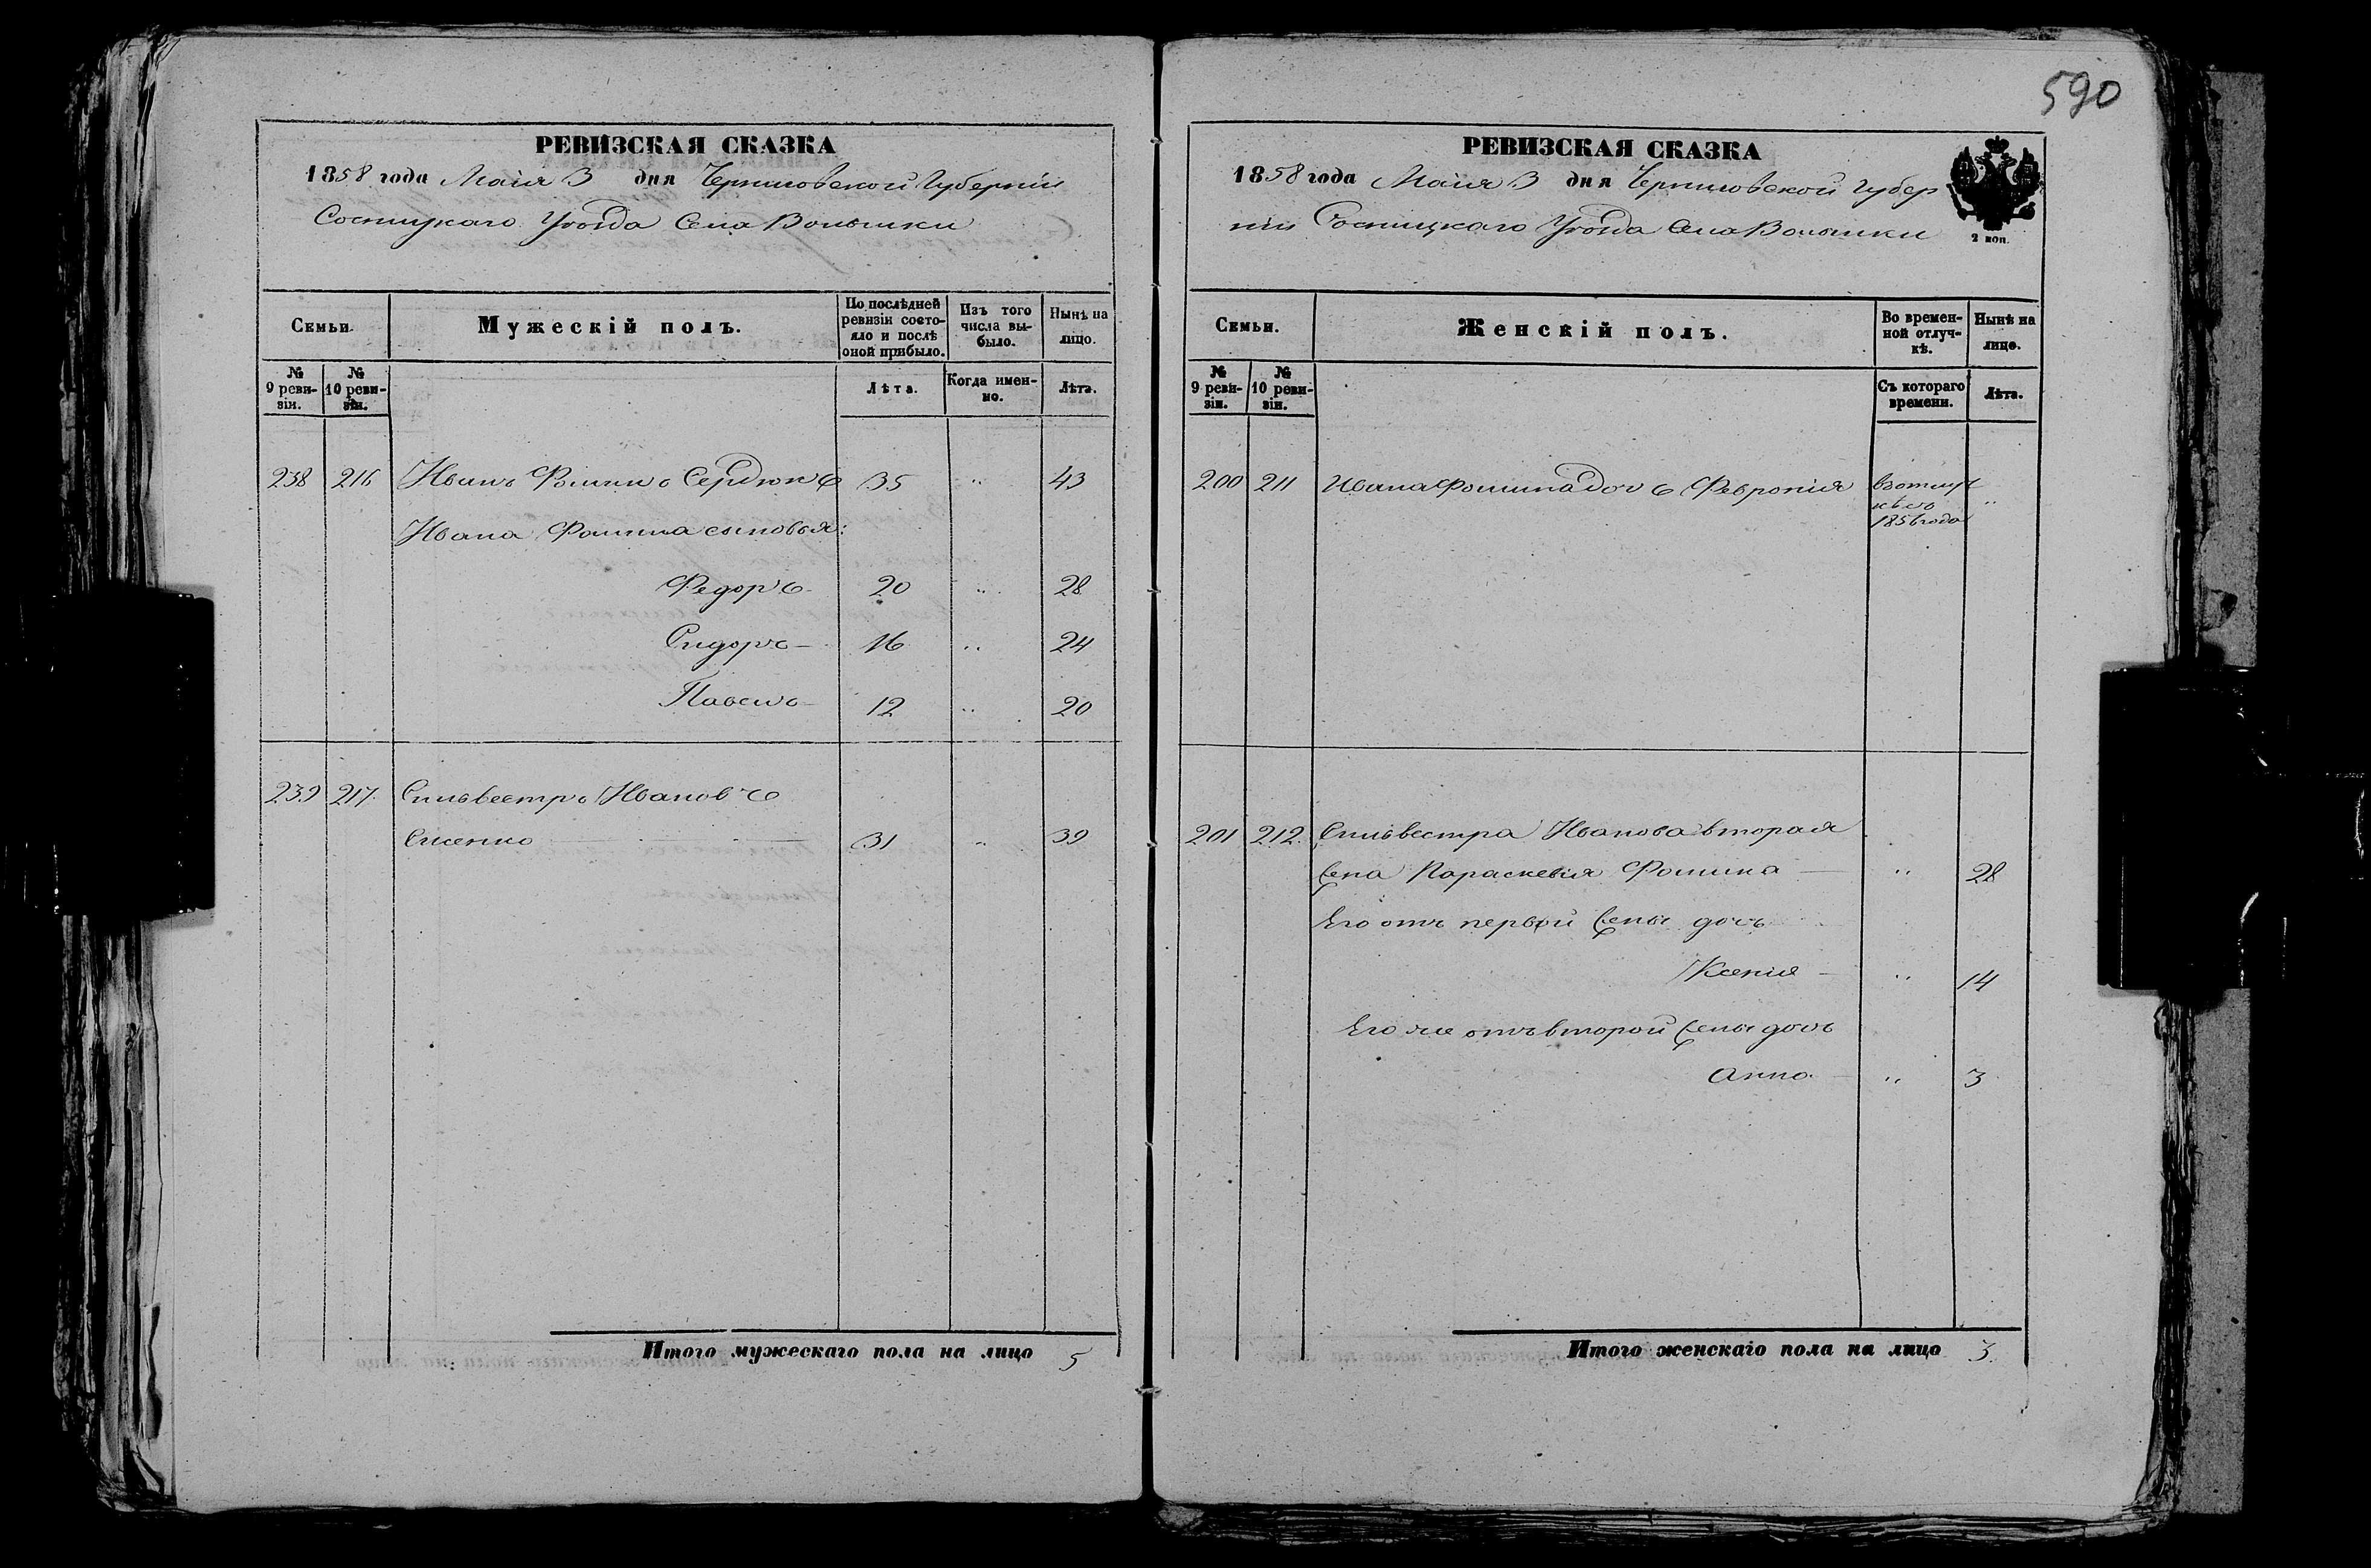 590
РЕВИЗСКАЯ СКАЗКА
1858 года Маія 3 дня Черниговской Губерніи
Сосницкаго Уѣзда Села Волынки
Семьи.
Мужескій полъ.
По послѣдней ревизіи состояло и послѣ оной прибыло.
Изъ того числа выбыло.
Нынѣ на лицо.
№ 9 ревизіи.
№ 10 ревизіи.
Лѣта.
Когда именно.
Лѣта.
238 216 Иванъ Фоминъ Сердюкъ 35 " 43
Ивана Фомина сыновья:
Федоръ 20 " 28
Сидоръ – 16 " 24
Павелъ – 12 " 20
239 217. Сильвестръ Ивановъ
31 " 39
Итого мужескаго пола на лицо 5
РЕВИЗСКАЯ СКАЗКА
1858 года Маія 3 дня Черниговской Губер
ніи Сосницкаго Уѣзда Села Волынки
2 коп.
Семьи.
Женскій полъ.
Во временной отлучкѣ.
Нынѣ на лицо.
№ 9 ревизіи.
№ 10 ревизіи.
Съ котораго времени.
Лѣта.
200 211 Ивана Фомина дочь Февронія въ отлуч
кѣ съ "
1856 года
201 212. Сильвестра Иванова вторая
жена Параскевія Фомина — " 28
Его отъ первой жены дочь
Ксенія – " 14
Его же отъ второй жены дочь
Анна – " 3
Итого женскаго пола на лицо 3.